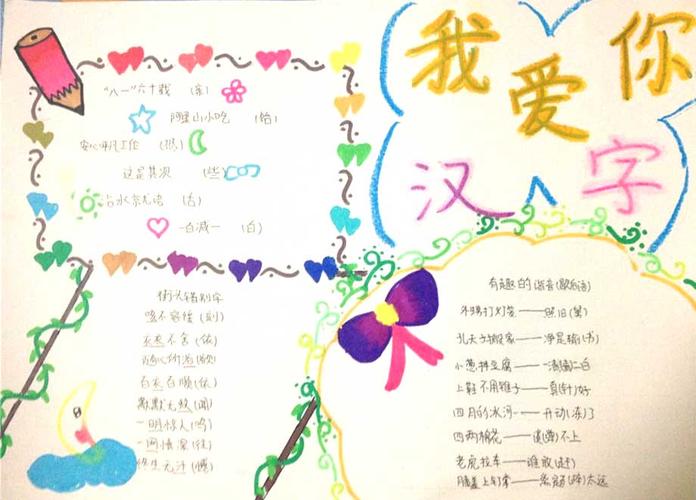 我爱你
汉字
"八一"六十载 (余)
阿里山小吃 (饸)
安心平凡工作
这是其次 (些)
治水 (古)
一百减一 (白)
街头错别字
咳不容缓 (刻)
丢丢不舍 (依)
百衣百顺 (依)
默默无蚊 (闻)
一明惊人 (鸣)
一网情深 (往)
终生无汗 (憾)
有趣的谐音(歇后语)
外甥打灯笼——照旧(舅)
孔夫子搬家——净是输(书)
小葱拌豆腐——一清二白
上鞋不用锥子——真(针)好
四月的冰河——开动(冻)了
四两棉花——谈(弹)不上
老虎拉车——谁敢(赶)
膝盖上钉掌——离蹄(题)太远